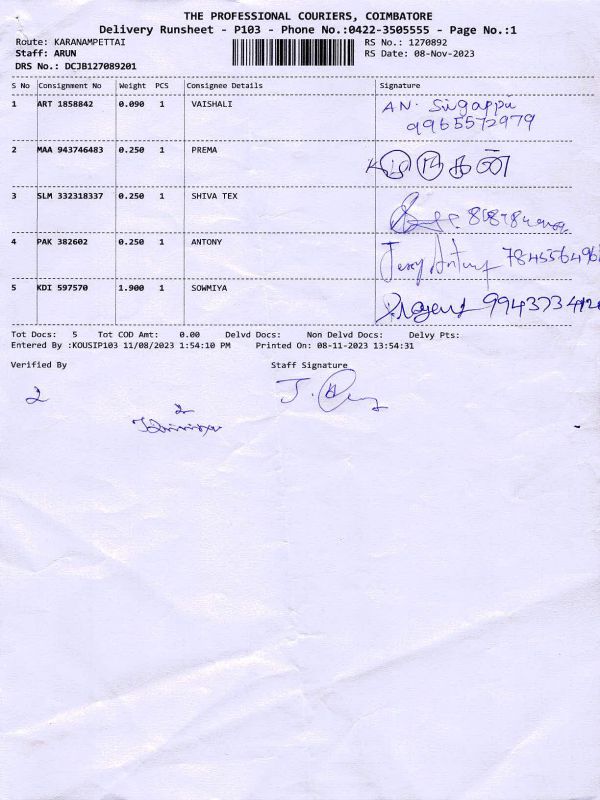 THE PROFESSIONAL COURIERS, COIMBATORE
Delivery Runsheet - P103 - Phone No.:0422-3505555 - Page No.:1
Route: KARANAMPETTAI RS No.: 1270892
Staff: ARUN RS Date: 08-Nov-2023
DRS No.: DCJB127089201
S No Consignment No Weight PCS Consignee Details Signature
1 ART 1858842 0.090 1 VAISHALI AN. Singappu
9965572979
2 MAA 943746483 0.250 1 PREMA
3 SLM 332318337 0.250 1 SHIVA TEX
4 PAK 382602 0.250 1 ANTONY Jery Antony
5 KDI 597570 1.900 1 SOWMIYA
Tot Docs: 5 Tot COD Amt: 0.00 Delvd Docs: Non Delvd Docs: Delvy Pts:
Entered By :KOUSIP103 11/08/2023 1:54:10 PM Printed On: 08-11-2023 13:54:31
Verified By Staff Signature
2